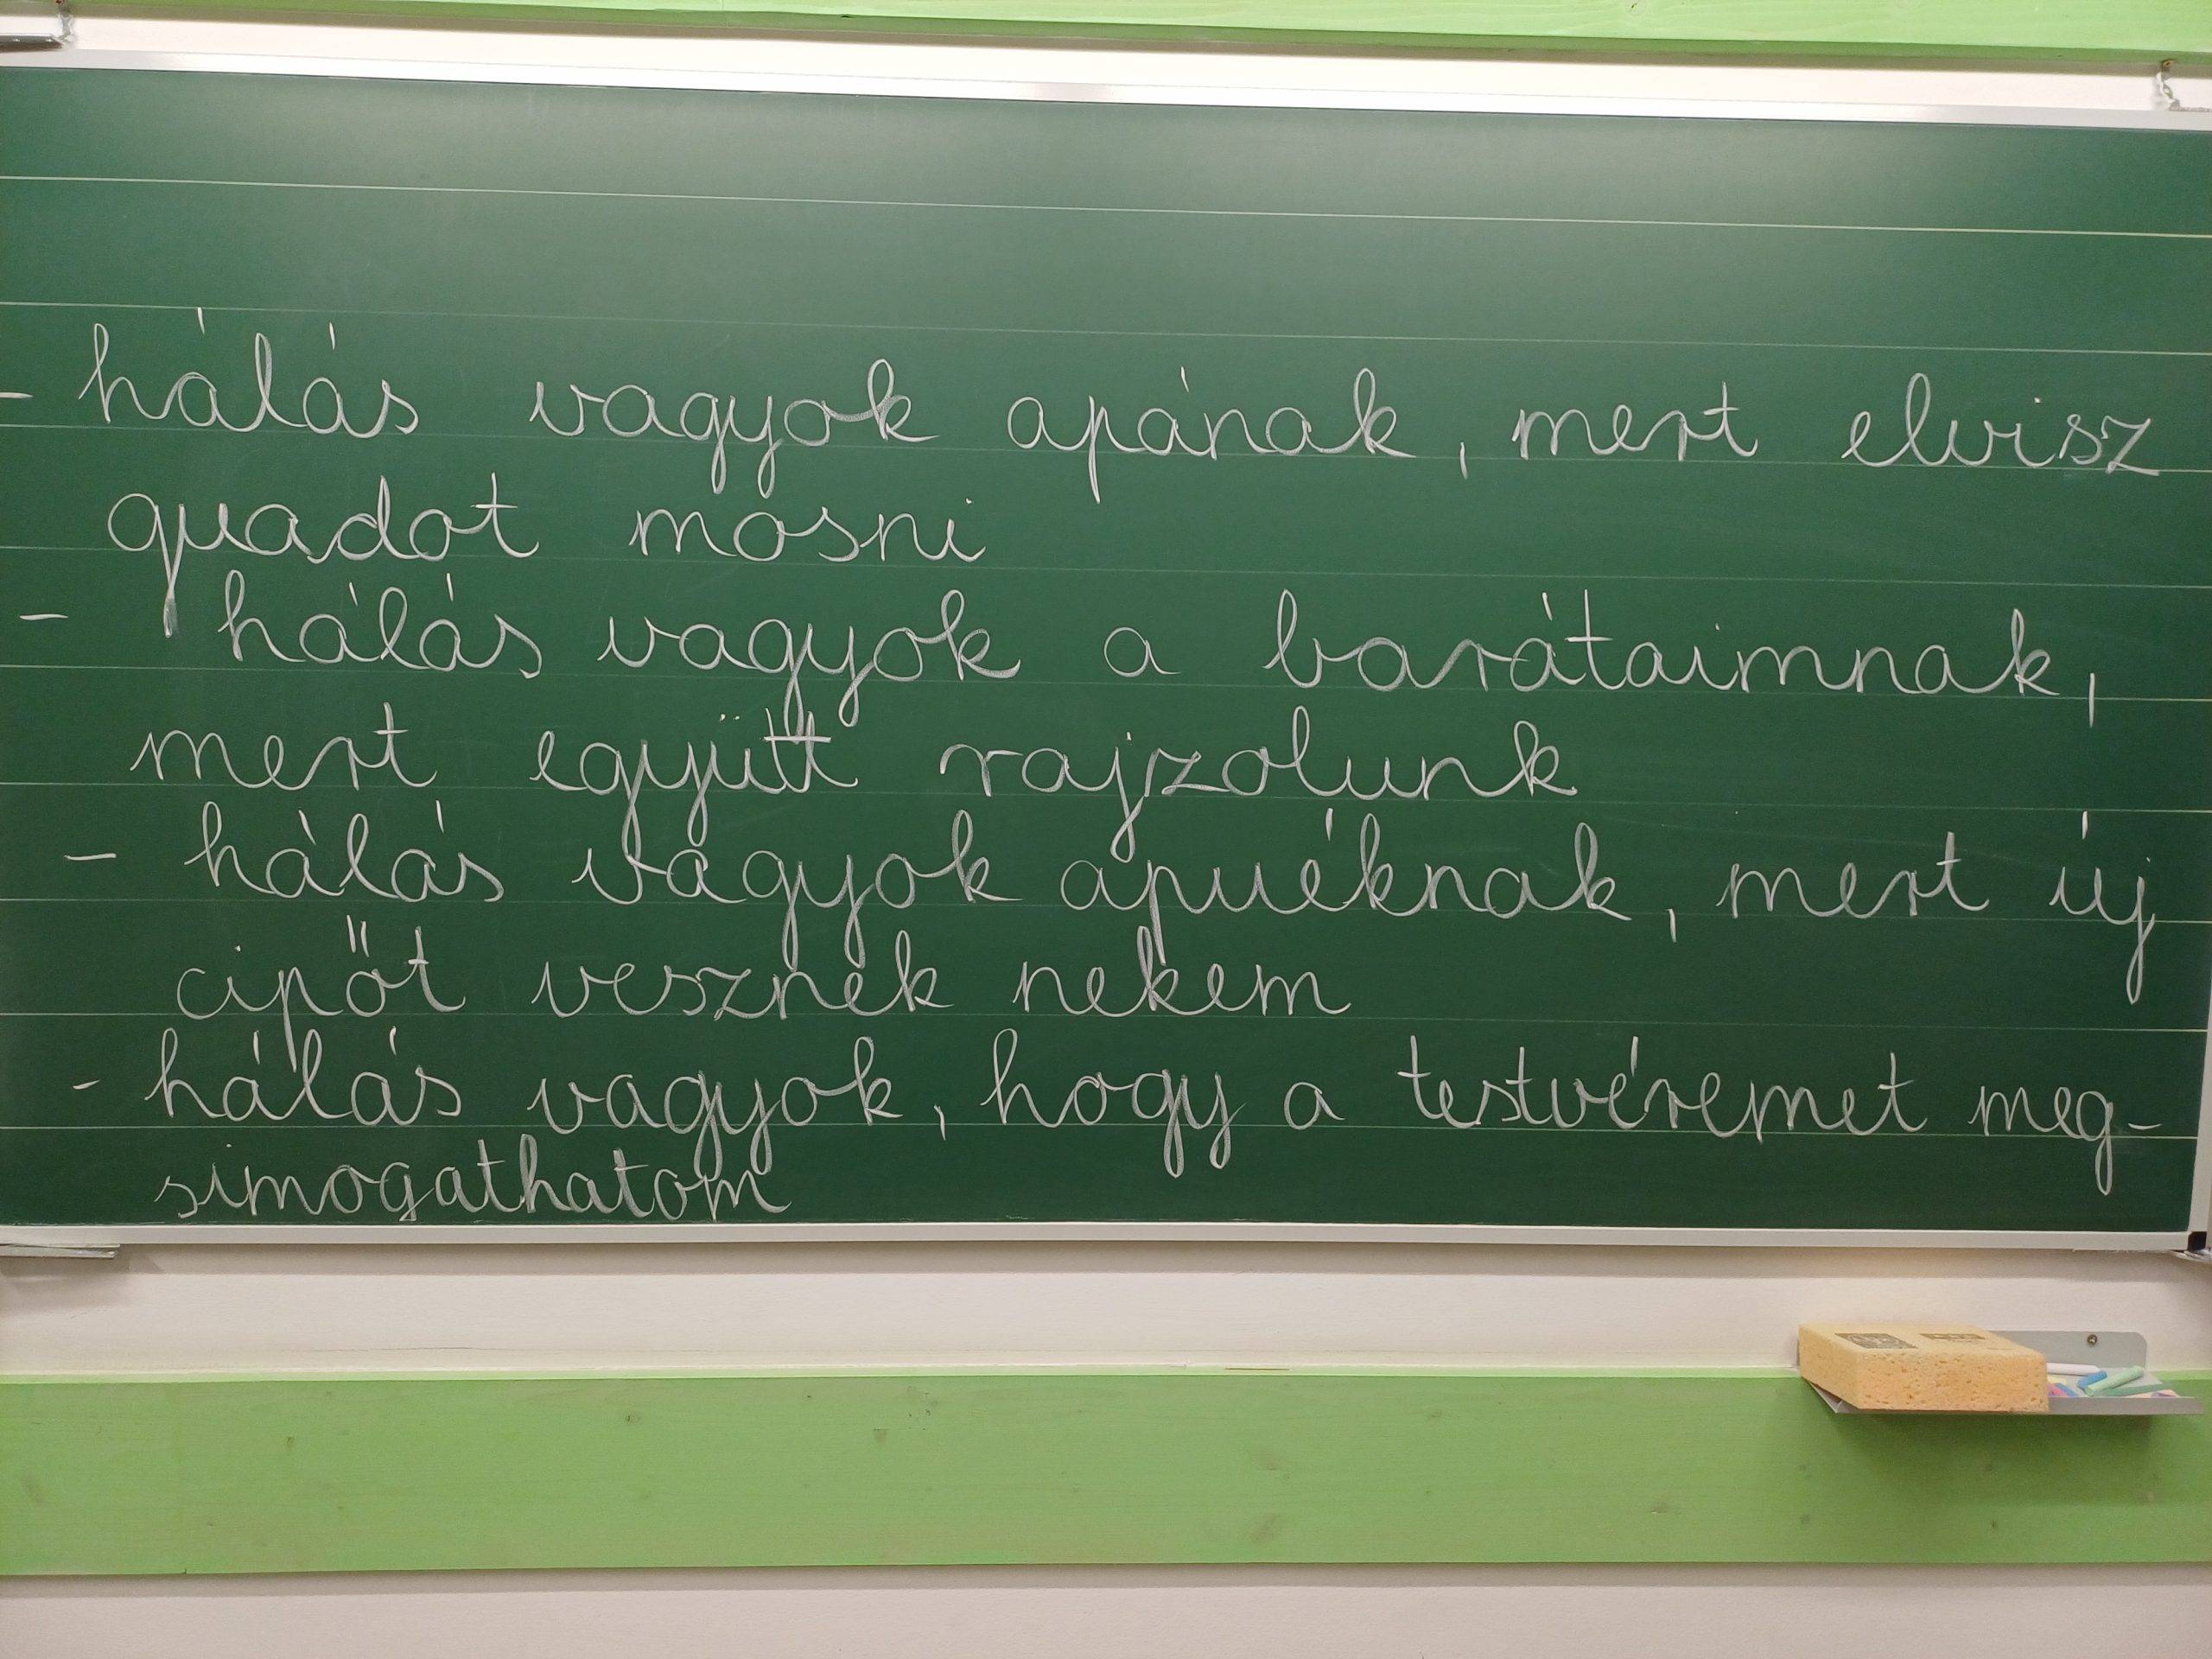 - hálás vagyok apának, mert elvisz
quadot mosni
- hálás vagyok a barátaimnak,
mert együtt rajzolunk
- hálás vagyok apuéknak, mert új
cipőt vesznek nekem
- hálás vagyok, hogy a testvéremet meg-
simogathatom